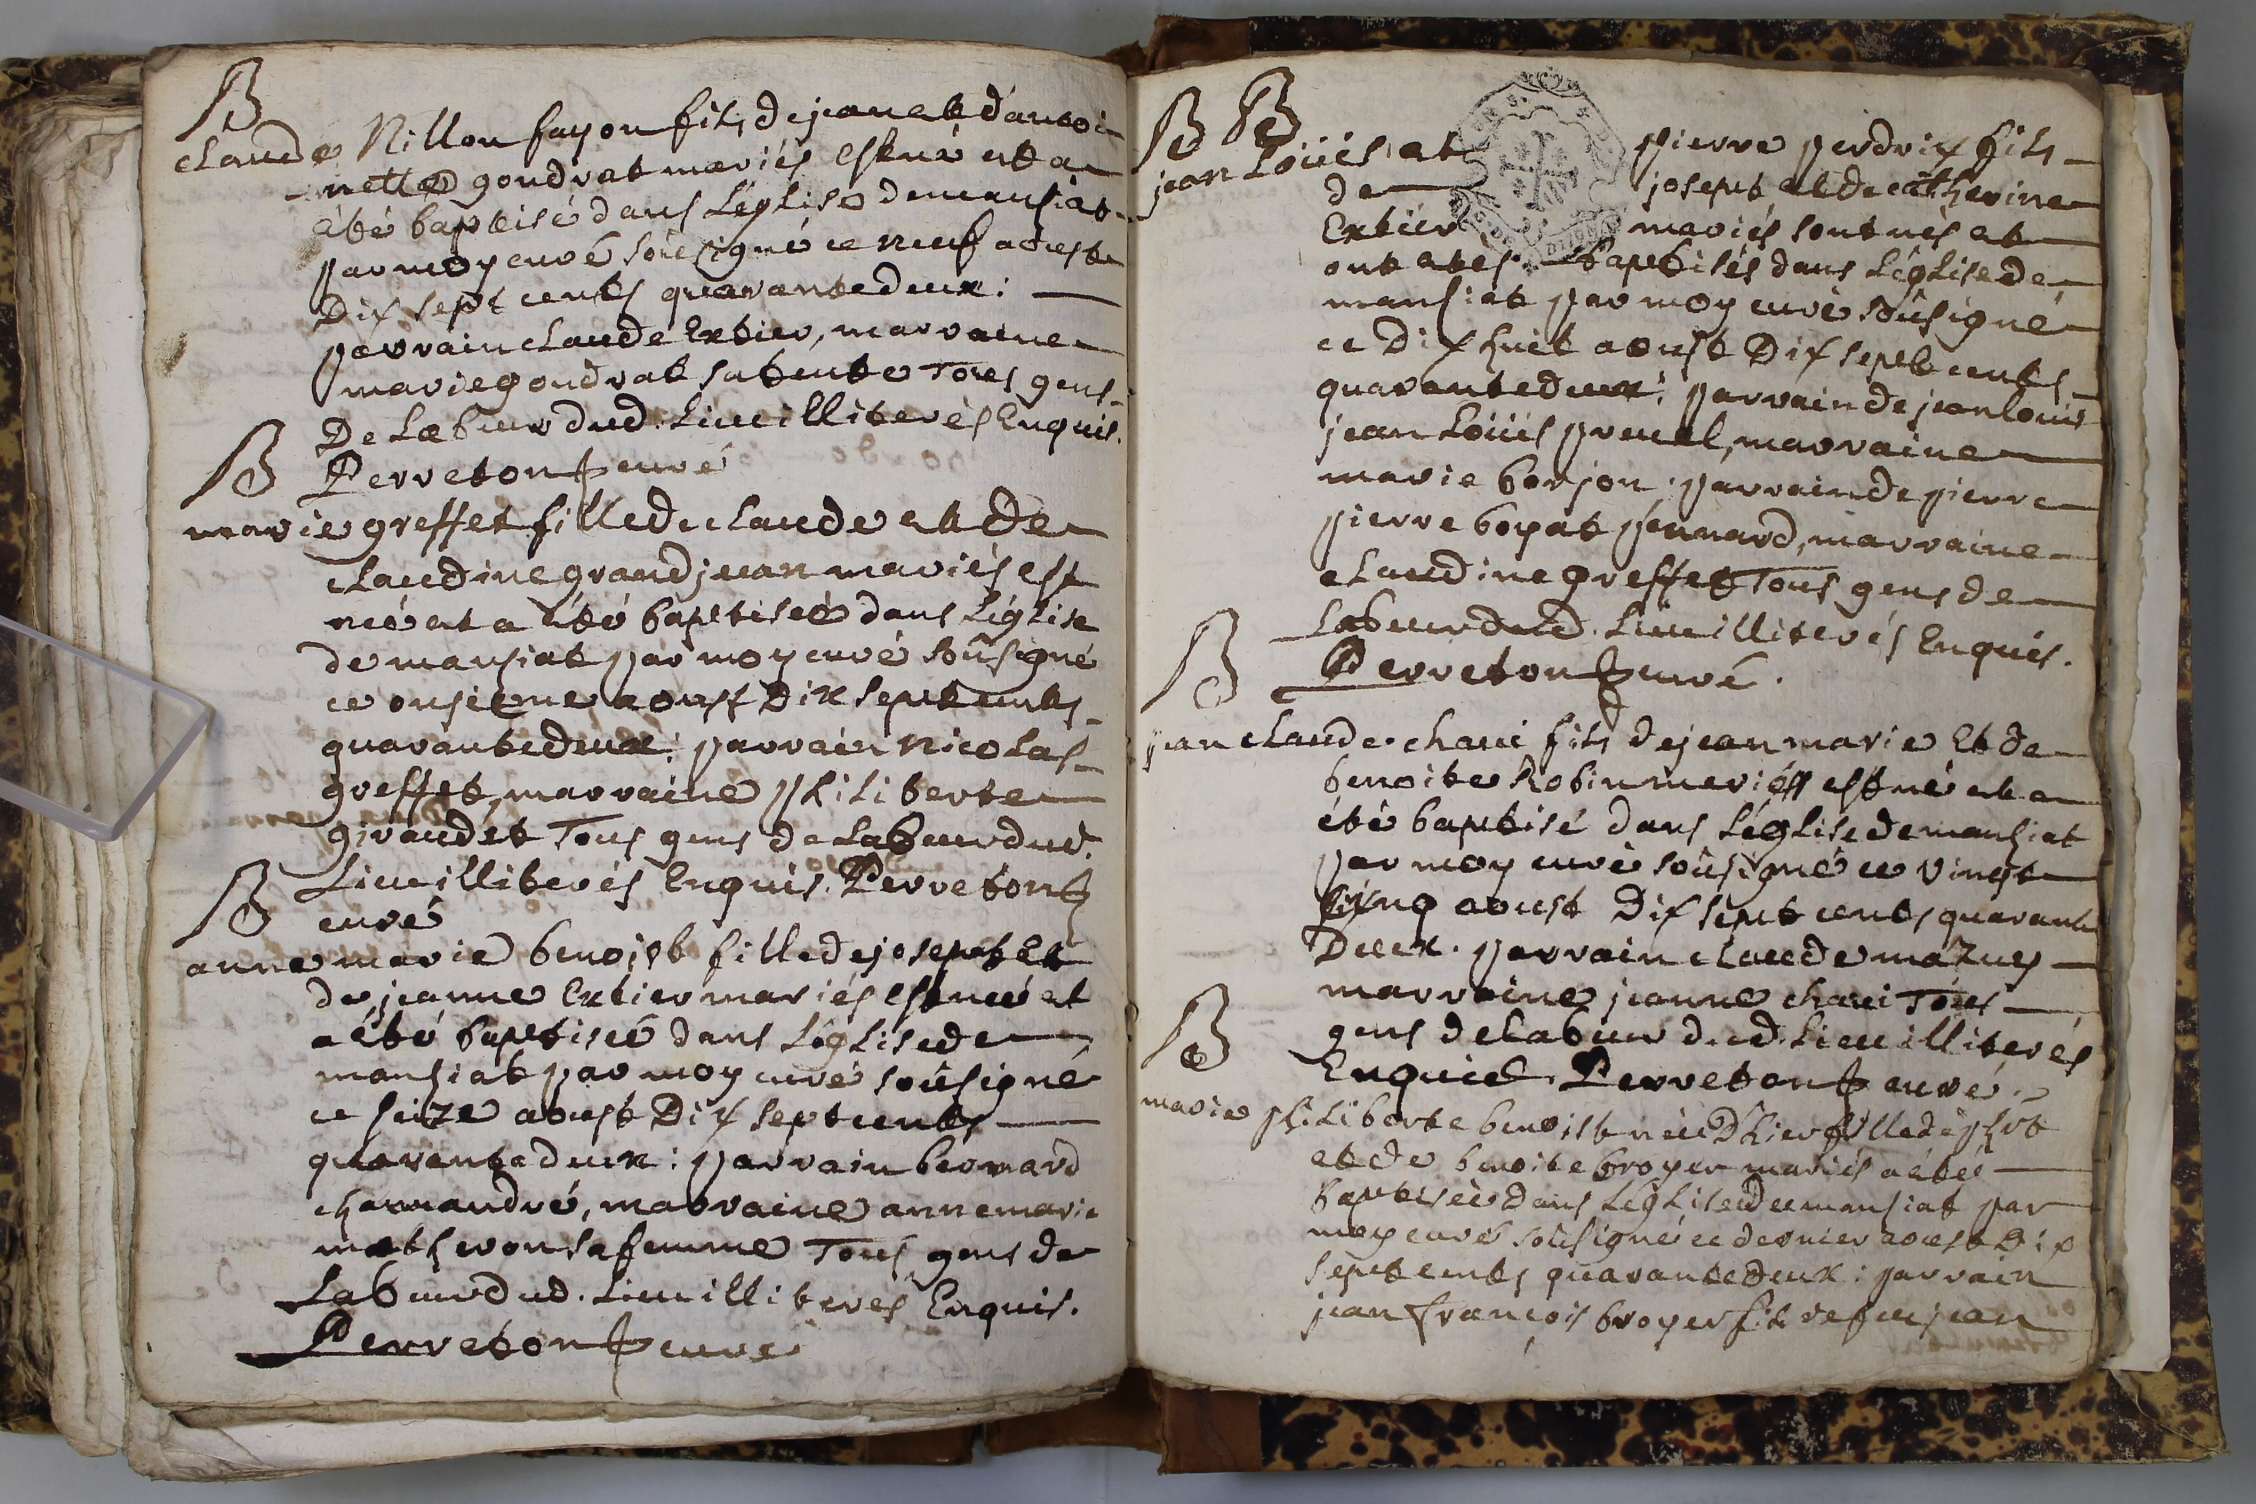 B
claude Nillon fayon fils de jean et d'antoi-
nette goudrat mariés est né et a
été baptisé dans L'église de mansiat
par moy curé soûsigné ce neuf aoust
Dix sept cents quarante deux:
parrain claude Extier, marraine
marie goudrat sa tente Tous gens
De Labeur dud. Lieu illiterés Enquis.
B
Perreton curé
marie greffet fille de claude et de
claudine grandjean mariés est
née et a été baptisée dans L'église
de mansiat par moy curé soûsigné
ce onsieme aoust Dix sept cents
quarante deux: parrain nicolas
greffet, marraine philiberte
giraudet Tous gens de Labeur dud.
Lieu illiterés Enquis. Perreton
B
curé
anne marie benoist fille de joseph Et
de jeanne Extier mariés est née et
a été baptisée dans L'église de
mansiat par moy curé soûsigné
ce seize aoust Dix sept cents
quarante deux: parrain bernard
charnandré, marraine anne marie
matheron sa femme Tous gens de
Labeur dud. Lieu illiterés Enquis.
Perreton curé
B B
jean Loüis et pierre perdrix fils
de joseph et de catherine
Extier mariés sont nés et
ont etés baptisés dans L'église de
mansiat par moy curé soûsigné
ce Dix huit aoust Dix sept cents
quarante deux: parrain de jean louis
jean Loüis pruel, marraine
marie borjon; parrain de pierre
pierre boyat pennard, marraine
claudine greffet Tous gens de
Labeur dud. Lieu illiterés Enquis.
B
Perreton curé.
jean claude chavi fils de jean marie Et de
benoite Robin mariés est né et a
été baptisé dans L'église de mansiat
par moy curé soûsigné ce vingt
cinq aoust Dix sept cents quarante
Deux. parrain claude mazuy
marraine jeanne chavi Tous
gens de Labeur dud. Lieu illiterés
B
Enquis. Perreton curé.
marie philiberte benoist née d'hier fille de phrt
et de benoite broyer mariés a étée
baptisée dans L'église de mansiat par
moy curé soûsigné ce dernier aoust Dix
sept cents quarante deux: parrain
jean françois broyer fils de feu jean